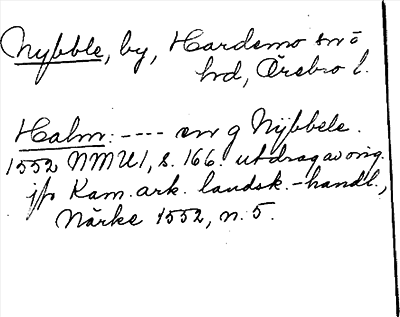 Nybble, by, Hardemo sn ō
hrd, Örebro l.
Halm: ---- en g Nÿbbele.
1552 NMU1, s. 166. utdrag av orig.
jfr Kam. ark. landsk.-handl.,
Närke 1552, n. 5.